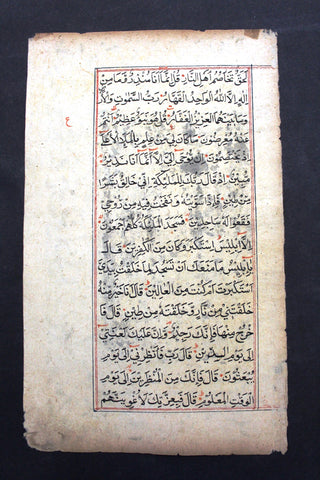 لحق تخاصم اهل النار قل انما انا منذر وما من
اله الا الله الواحد القهار رب السموت والا
وما بينهما العزيز الغفار قل هو نبؤ عظيم انتم
عنه معرضون ما كان لي من علم بالملا الاعلى
اذ يختصمون ان يوحى الي الا انما انا نذير
مبين اذ قال ربك للملئكة اني خالق بشرا
من طين فاذا سويته ونفخت فيه من روحي
فقعوا له ساجدين فسجد الملئكة كلهم اجمعون
الا ابليس استكبر وكان من الكفرين قال
يا ابليس ما منعك ان تسجد لما خلقت بيدي
استكبرت ام كنت من العالين قال انا خير منه
خلقتني من نار وخلقته من طين قال فا
خرج منها فانك رجيم وان عليك لعنتي
الى يوم الدين قال رب فانظرني الى يوم
يبعثون قال فانك من المنظرين الى يوم
الوقت المعلوم قال فبعزتك لاغوينهم
ع